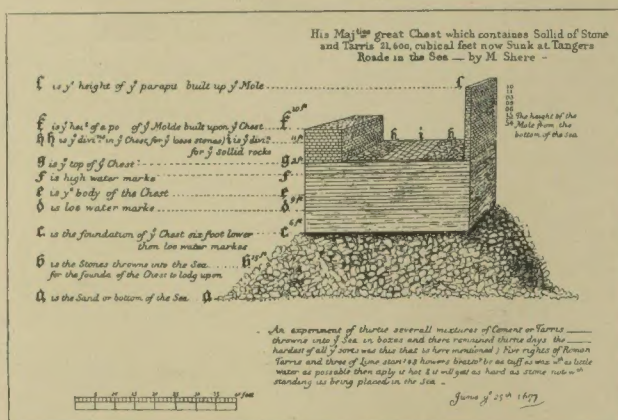 His Maj^ties great Chest which containes Sollid of Stone
and Tarris 21,600, cubical feet now Sunk at Tangers
Roade in the Sea — by M. Shere -
l is yᵉ height of yᵉ parapu built up yᵉ Mole
l
k is yᵉ hei^t of a po of yᵉ Molde built upon yᵉ Chest
k 10 ft
h h is yᵉ divi in yᵉ Chest, for yᵉ loose stones; i is yᵉ divi
for yᵉ sollid rocks
h 11 ft
h i h
The height of the
Mole from the
bottom of the Sea
g is yᵉ top of yᵉ Chest
g 2 ft
f is high water marke
f
e is yᵉ body of the Chest
e 9 ft
d is loe water marke
d
6 ft
c is the foundation of yᵉ Chest six foot lower
then loe water markes
c
b is the Stones throwne into the Sea
for the founda of the Chest to lody upon
b 15 ft
a is the Sand or bottom of the Sea
a
An experiment of thirtie severall mixtures of Cement or Tarris
throwne into yᵉ Sea in boxes and there remained thirtie days the
hardest of all yᵉ sorts was this that is here mentioned; Five rights of Roman
Tarris and three of Lime stones howers beaten to be as tuff as was wᵗʰ as little
water as possable then aply it hot & it will get as hard as stone notwᵗʰ
standing its being placed in the Sea -
June yᵉ 25th 1677
feet